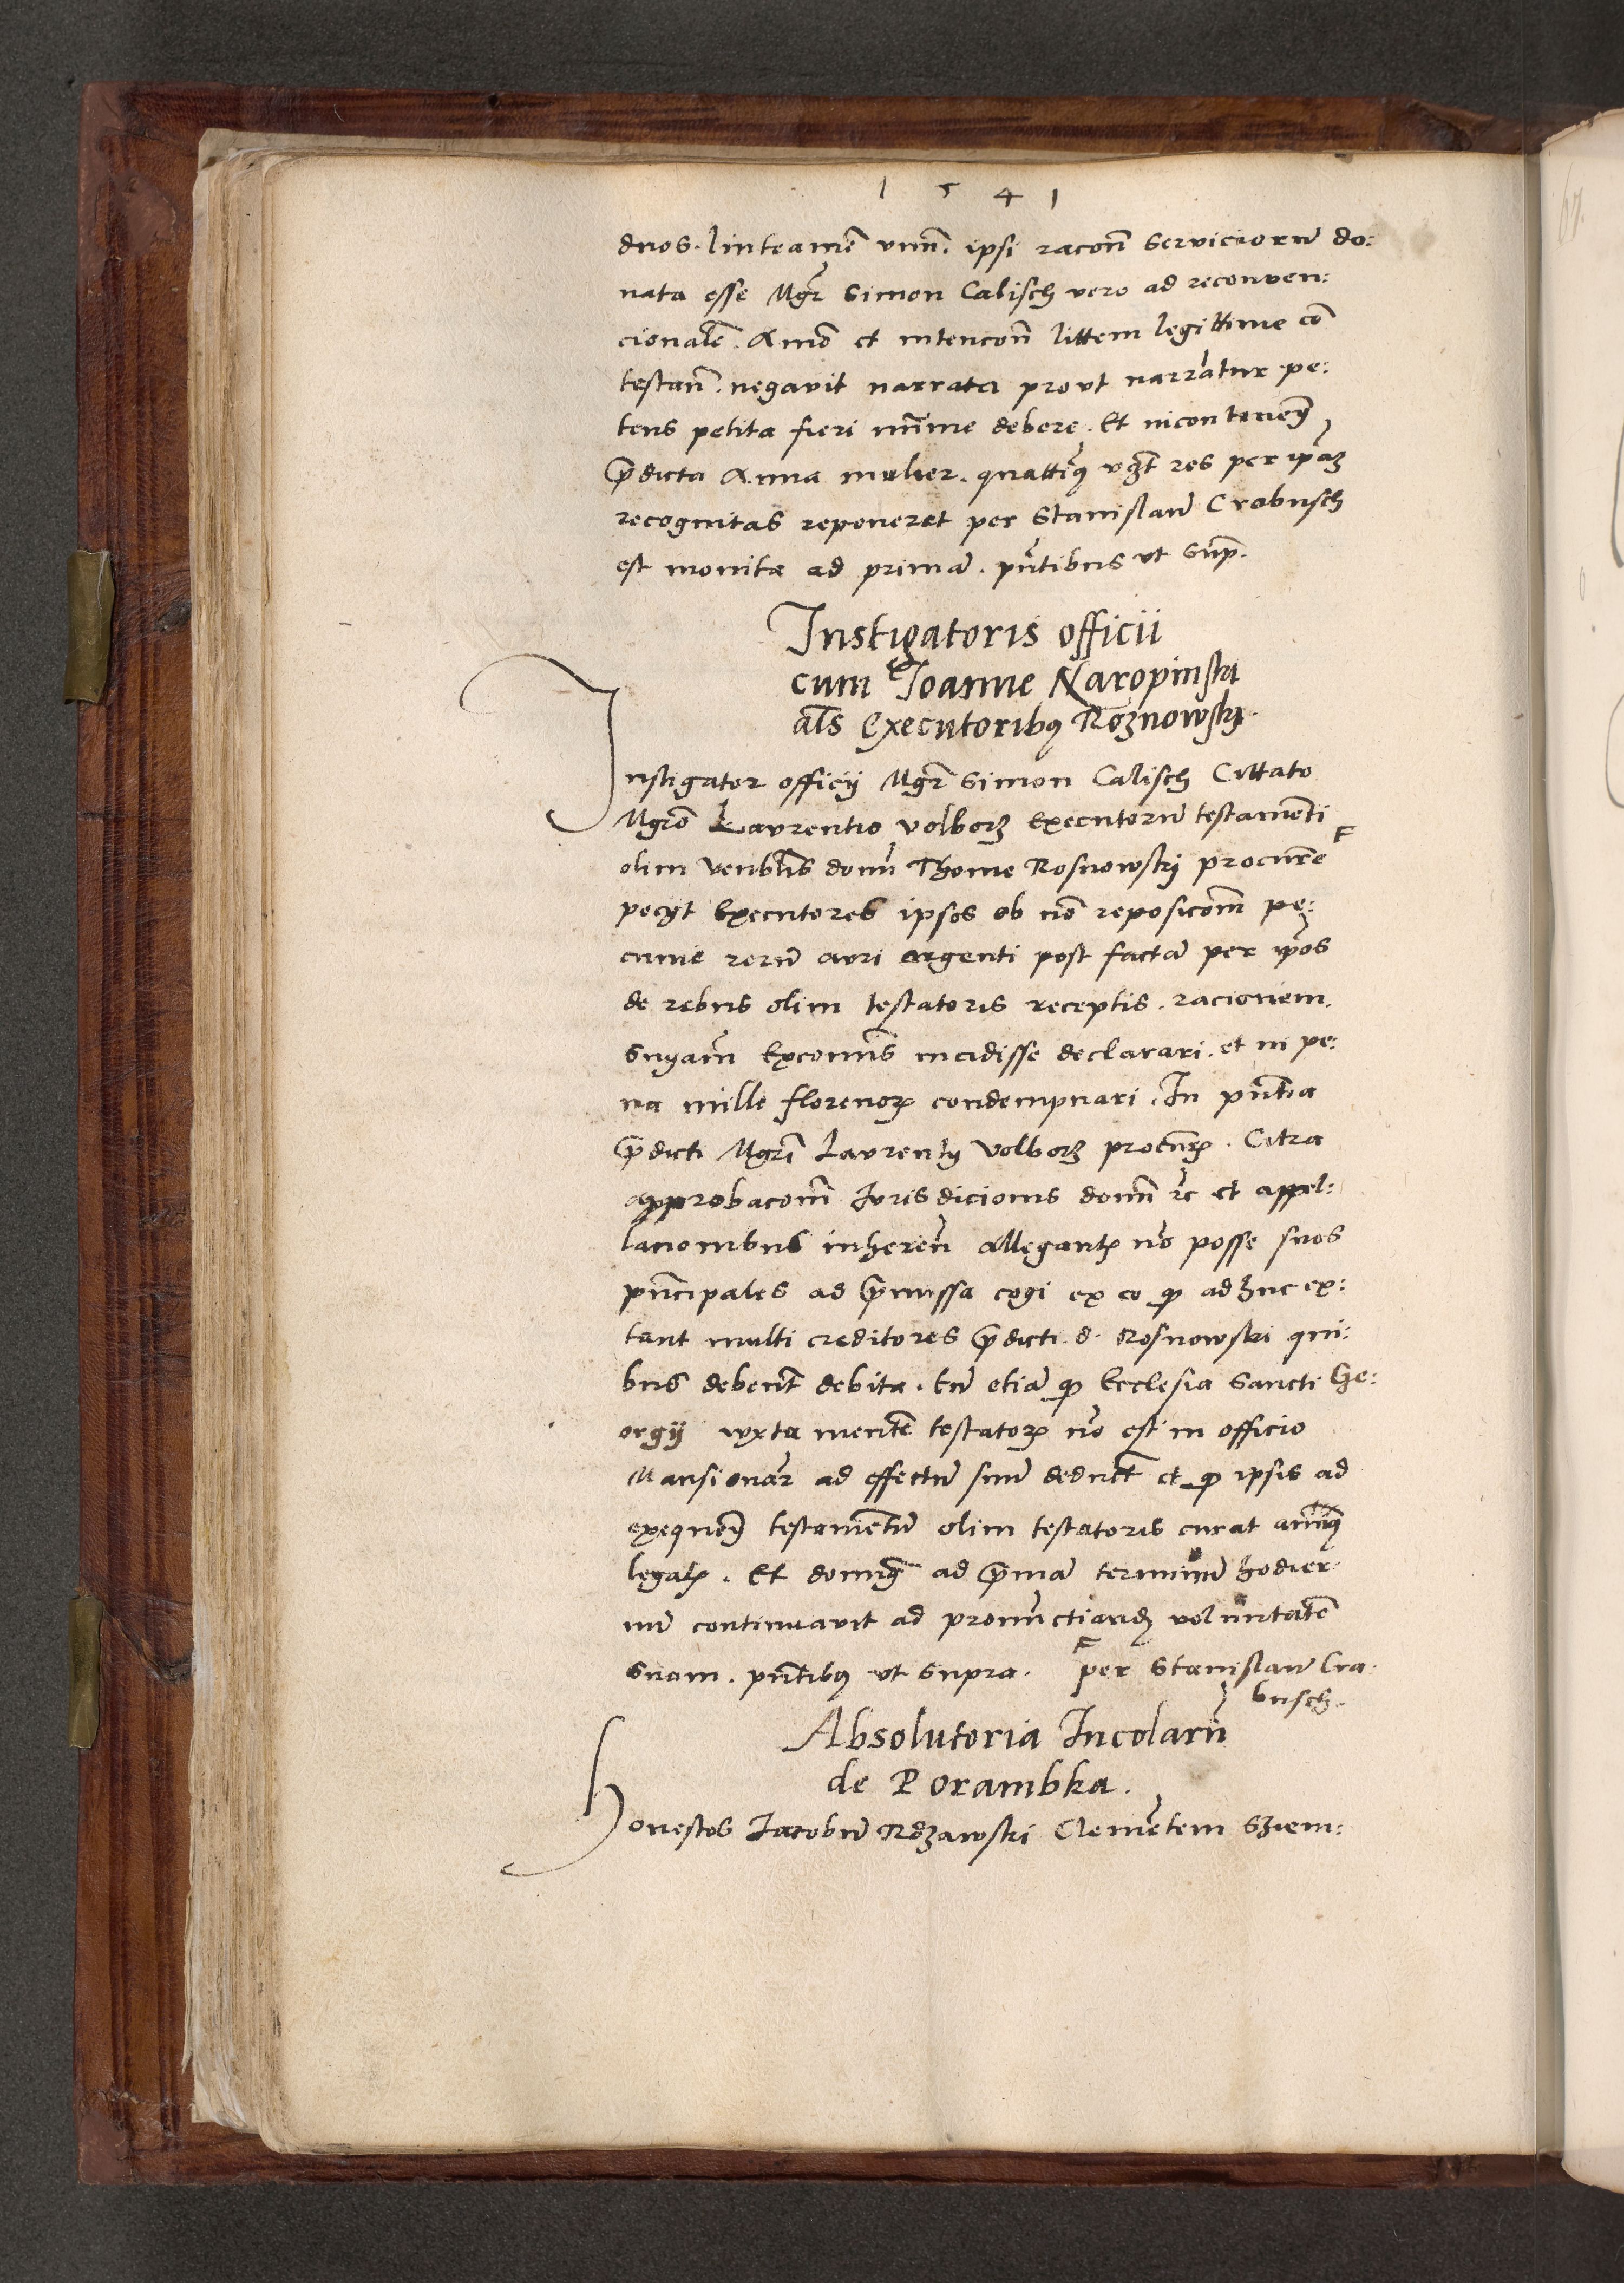 1541
duos. linteamē vnū. ipsi racōn̄ serviciorū do:
nata esse Mgr̄ Simon Calisch vero ad reconven:
cionalē. Annō et intencōn̄ littem legittime cō
testan̄. negavit narrata prout narrātur pe:
tens petita fieri mīme debere. Et incontineñ
p̄dicta Anna mulier. quatt res per ip̄az
recognitas reponeret per Stanislaū Crabusch
est monita ad primā. pn̄tibus ut sup̄.
Instigatoris officii
cum Joanne Naropinski
al̄s Executoribꝫ Roznowsky.
Instigator officij Mgr̄ Simon Calisch Cittato
Mgrō Laurentio Volborz Executorū testamenti
olim Venblis domī Thome Rosnowskj procurē
pecyt Executores ipsos ob nō reposicōn̄ pe:
cunie rerū auri argenti post factā per ip̄os
de rebus olim testatoris receptis. racionem.
Snyam̄ Excōmīs incidisse declarari. et in pe:
na mille florenoꝝ condempnari. In pn̄tia
p̄dicti Mgrī Laurentij Volborz procur̄ꝝ. Citra
approbacōm̄ Jurisdicionis domī rc̄ et appel:
lacionibus inheren̄ allegantꝫ nō posse suos
prīcipales ad p̄missa cogi ex eo ꝙ adhuc ex:
tant multi creditores p̄dicti. d. Rosnowski qui:
bus debent̄ debita. Eū etiā ꝙ Ecclesia Sancti Ge:
orgij iuxta mentē testatoꝝ nō est in officio
Mansionar̄ ad effectū suū deduct̄ et ꝙ ipsis ad
exequenꝫ testamentū olim testatoris curat
legatꝫ. Et ad p̄mā terminū hodier
nū continuavit ad pronūctiandꝫ voluntatē
suam. pn̄tibꝫ ut supra. per Stanislaū Cra.
busch.
Absolutoria Incolarū
de Porambka.
Honestos Jacobū Rdzawski Clemētem Sziem: